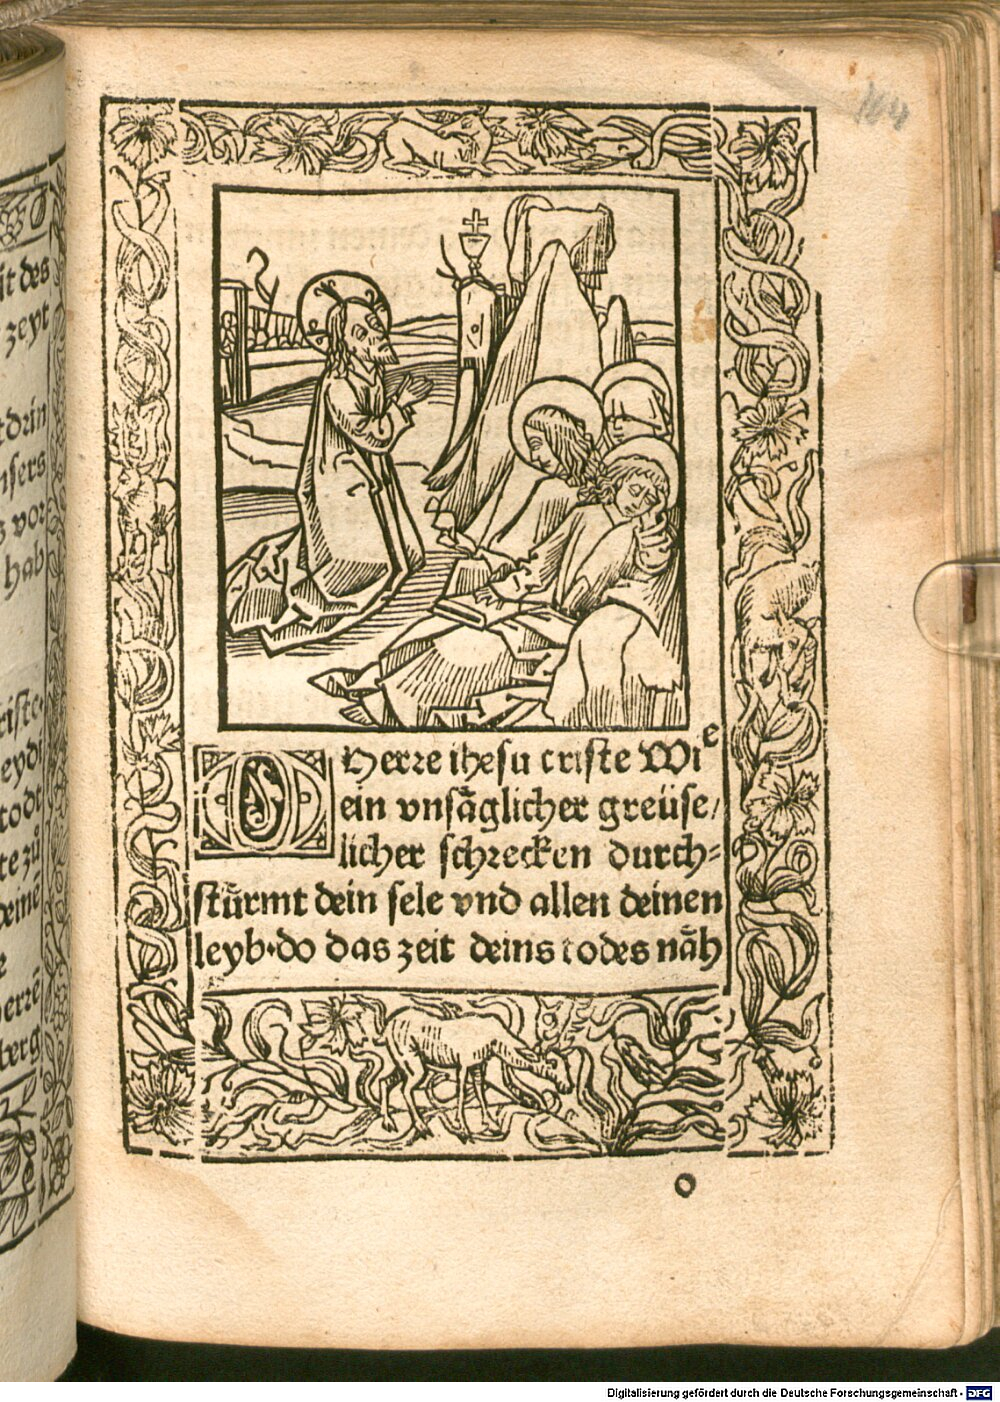 it des
zeyt
hab
todt
berg
104
O Herre ihesu criste Wie
ein vnsäglicher greüse/
licher schrecken durch-
stürmt dein sele vnd allen deinen
leyb·do das zeit deins todes näh
o
Digitalisierung gefördert durch die Deutsche Forschungsgemeinschaft - DFG